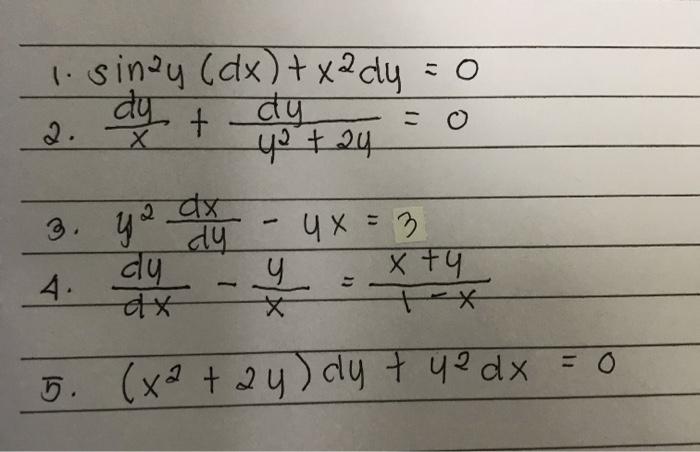 1. sin²y (dx) + x²dy = 0
2. dy/x + dy/(y² + 2y) = 0
3. y² dx/dy - yx = 3
4. dy/dx - y/x = (x + y)/(1 - x)
5. (x² + 2y) dy + y² dx = 0